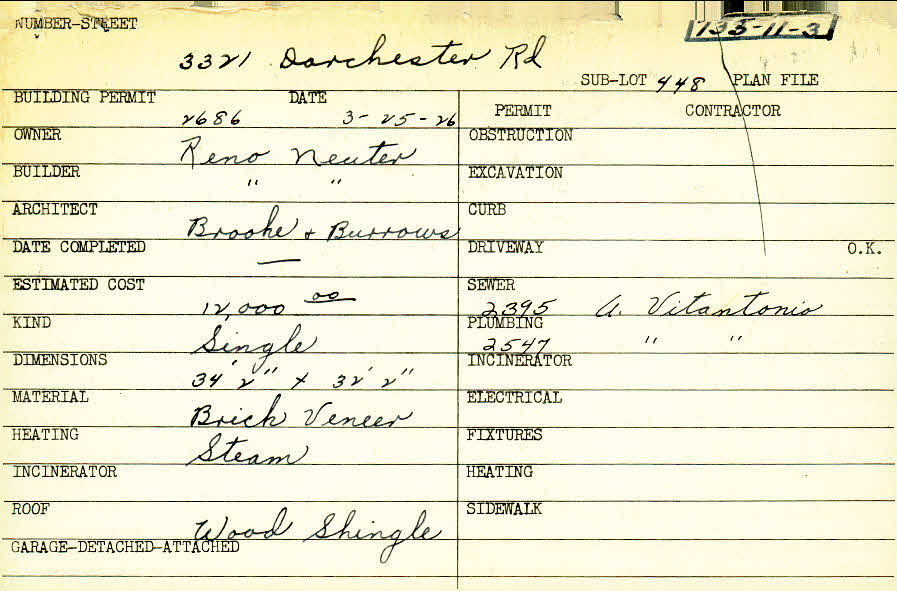 NUMBER-STREET
735-11-3
3321 Dorchester Rd
SUB-LOT 448 PLAN FILE
BUILDING PERMIT DATE
2686 3-25-26
OWNER
Reno Neuter
BUILDER
" "
ARCHITECT
Brooke + Burrows
DATE COMPLETED
—
ESTIMATED COST
12,000 00
KIND
Single
DIMENSIONS
34' 2" x 32' 2"
MATERIAL
Brick Veneer
HEATING
Steam
INCINERATOR
ROOF
Wood Shingle
GARAGE-DETACHED-ATTACHED
PERMIT CONTRACTOR
OBSTRUCTION
EXCAVATION
CURB
DRIVEWAY O.K.
SEWER
2395 A. Vitantonio
PLUMBING
2547 " "
INCINERATOR
ELECTRICAL
FIXTURES
HEATING
SIDEWALK